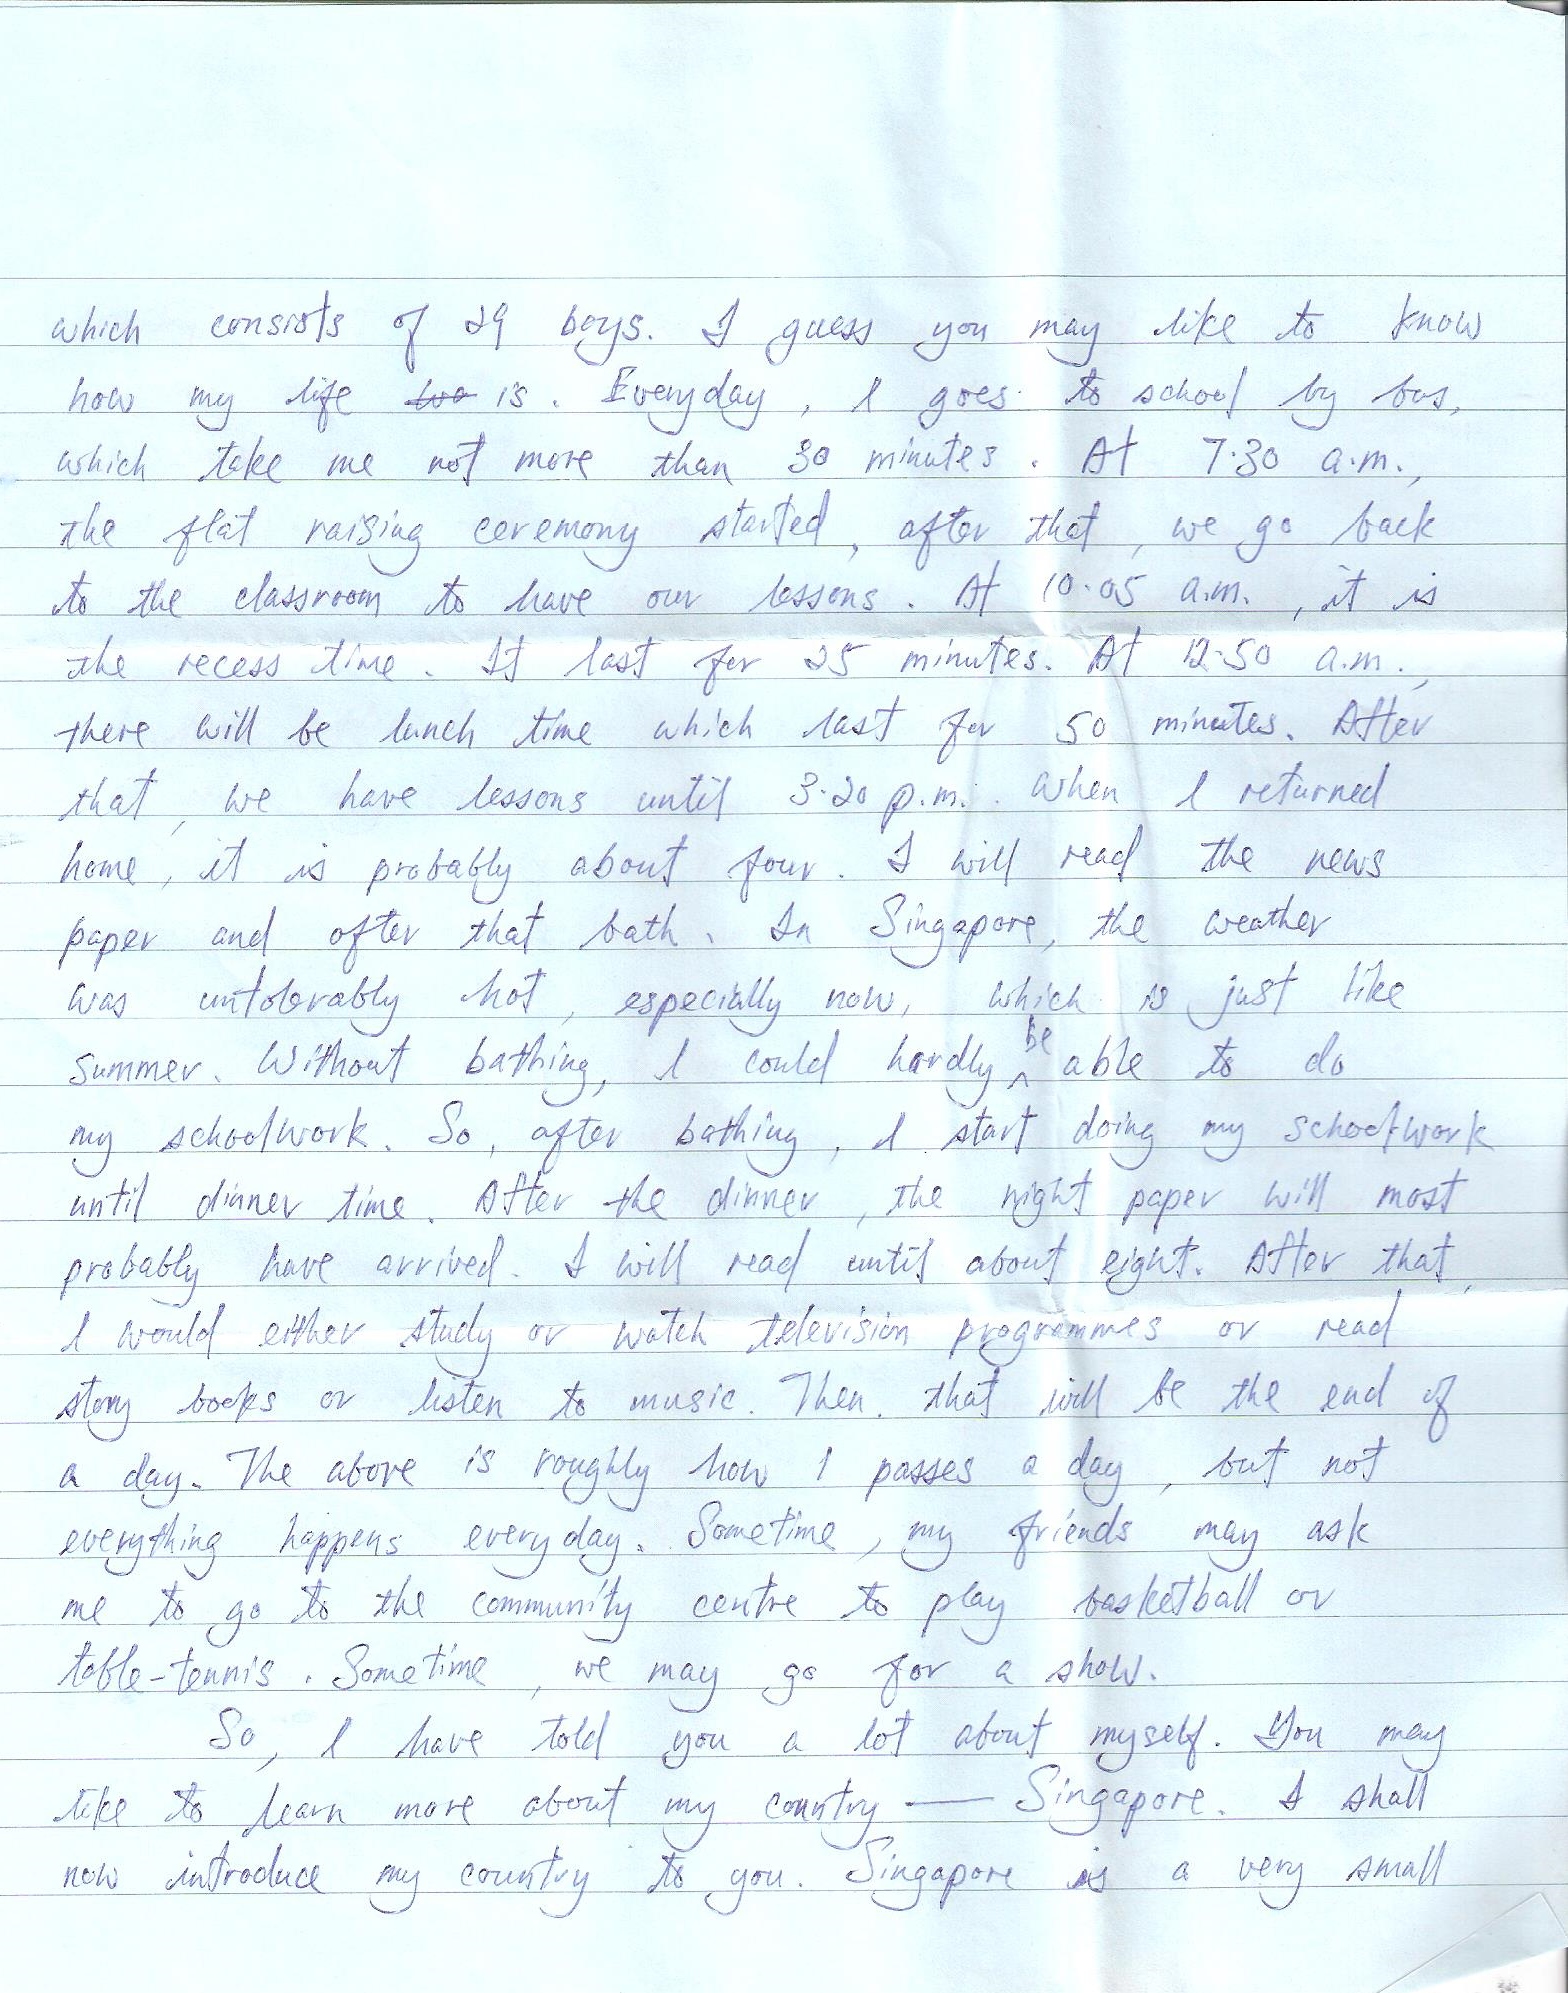 which consists of 29 boys. I guess you may like to know
how my life is. Everyday, I goes to school by bus,
which take me not more than 30 minutes. At 7.30 a.m.,
the flat raising ceremony started, after that, we go back
to the classroom to have our lessons. At 10.05 a.m., it is
the recess time. It last for 25 minutes. At 12.50 a.m.,
there will be lunch time which last for 50 minutes. After
that, we have lessons until 3.20 p.m.. When I returned
home, it is probably about four. I will read the news
paper and after that bath. In Singapore, the weather
was untolerably hot, especially now, which is just like
summer. Without bathing, I could hardly be able to do
my schoolwork. So, after bathing, I start doing my schoolwork
until dinner time. After the dinner, the night paper will most
probably have arrived. I will read until about eight. After that,
I would either study or watch television programmes or read
story books or listen to music. Then. that will be the end of
a day. The above is roughly how I passes a day, but not
everything happens everyday. Sometime, my friends may ask
me to go to the community centre to play basketball or
table-tennis. Sometime, we may go for a show.
So, I have told you a lot about myself. You may
like to learn more about my country — Singapore. I shall
now introduce my country to you. Singapore is a very small